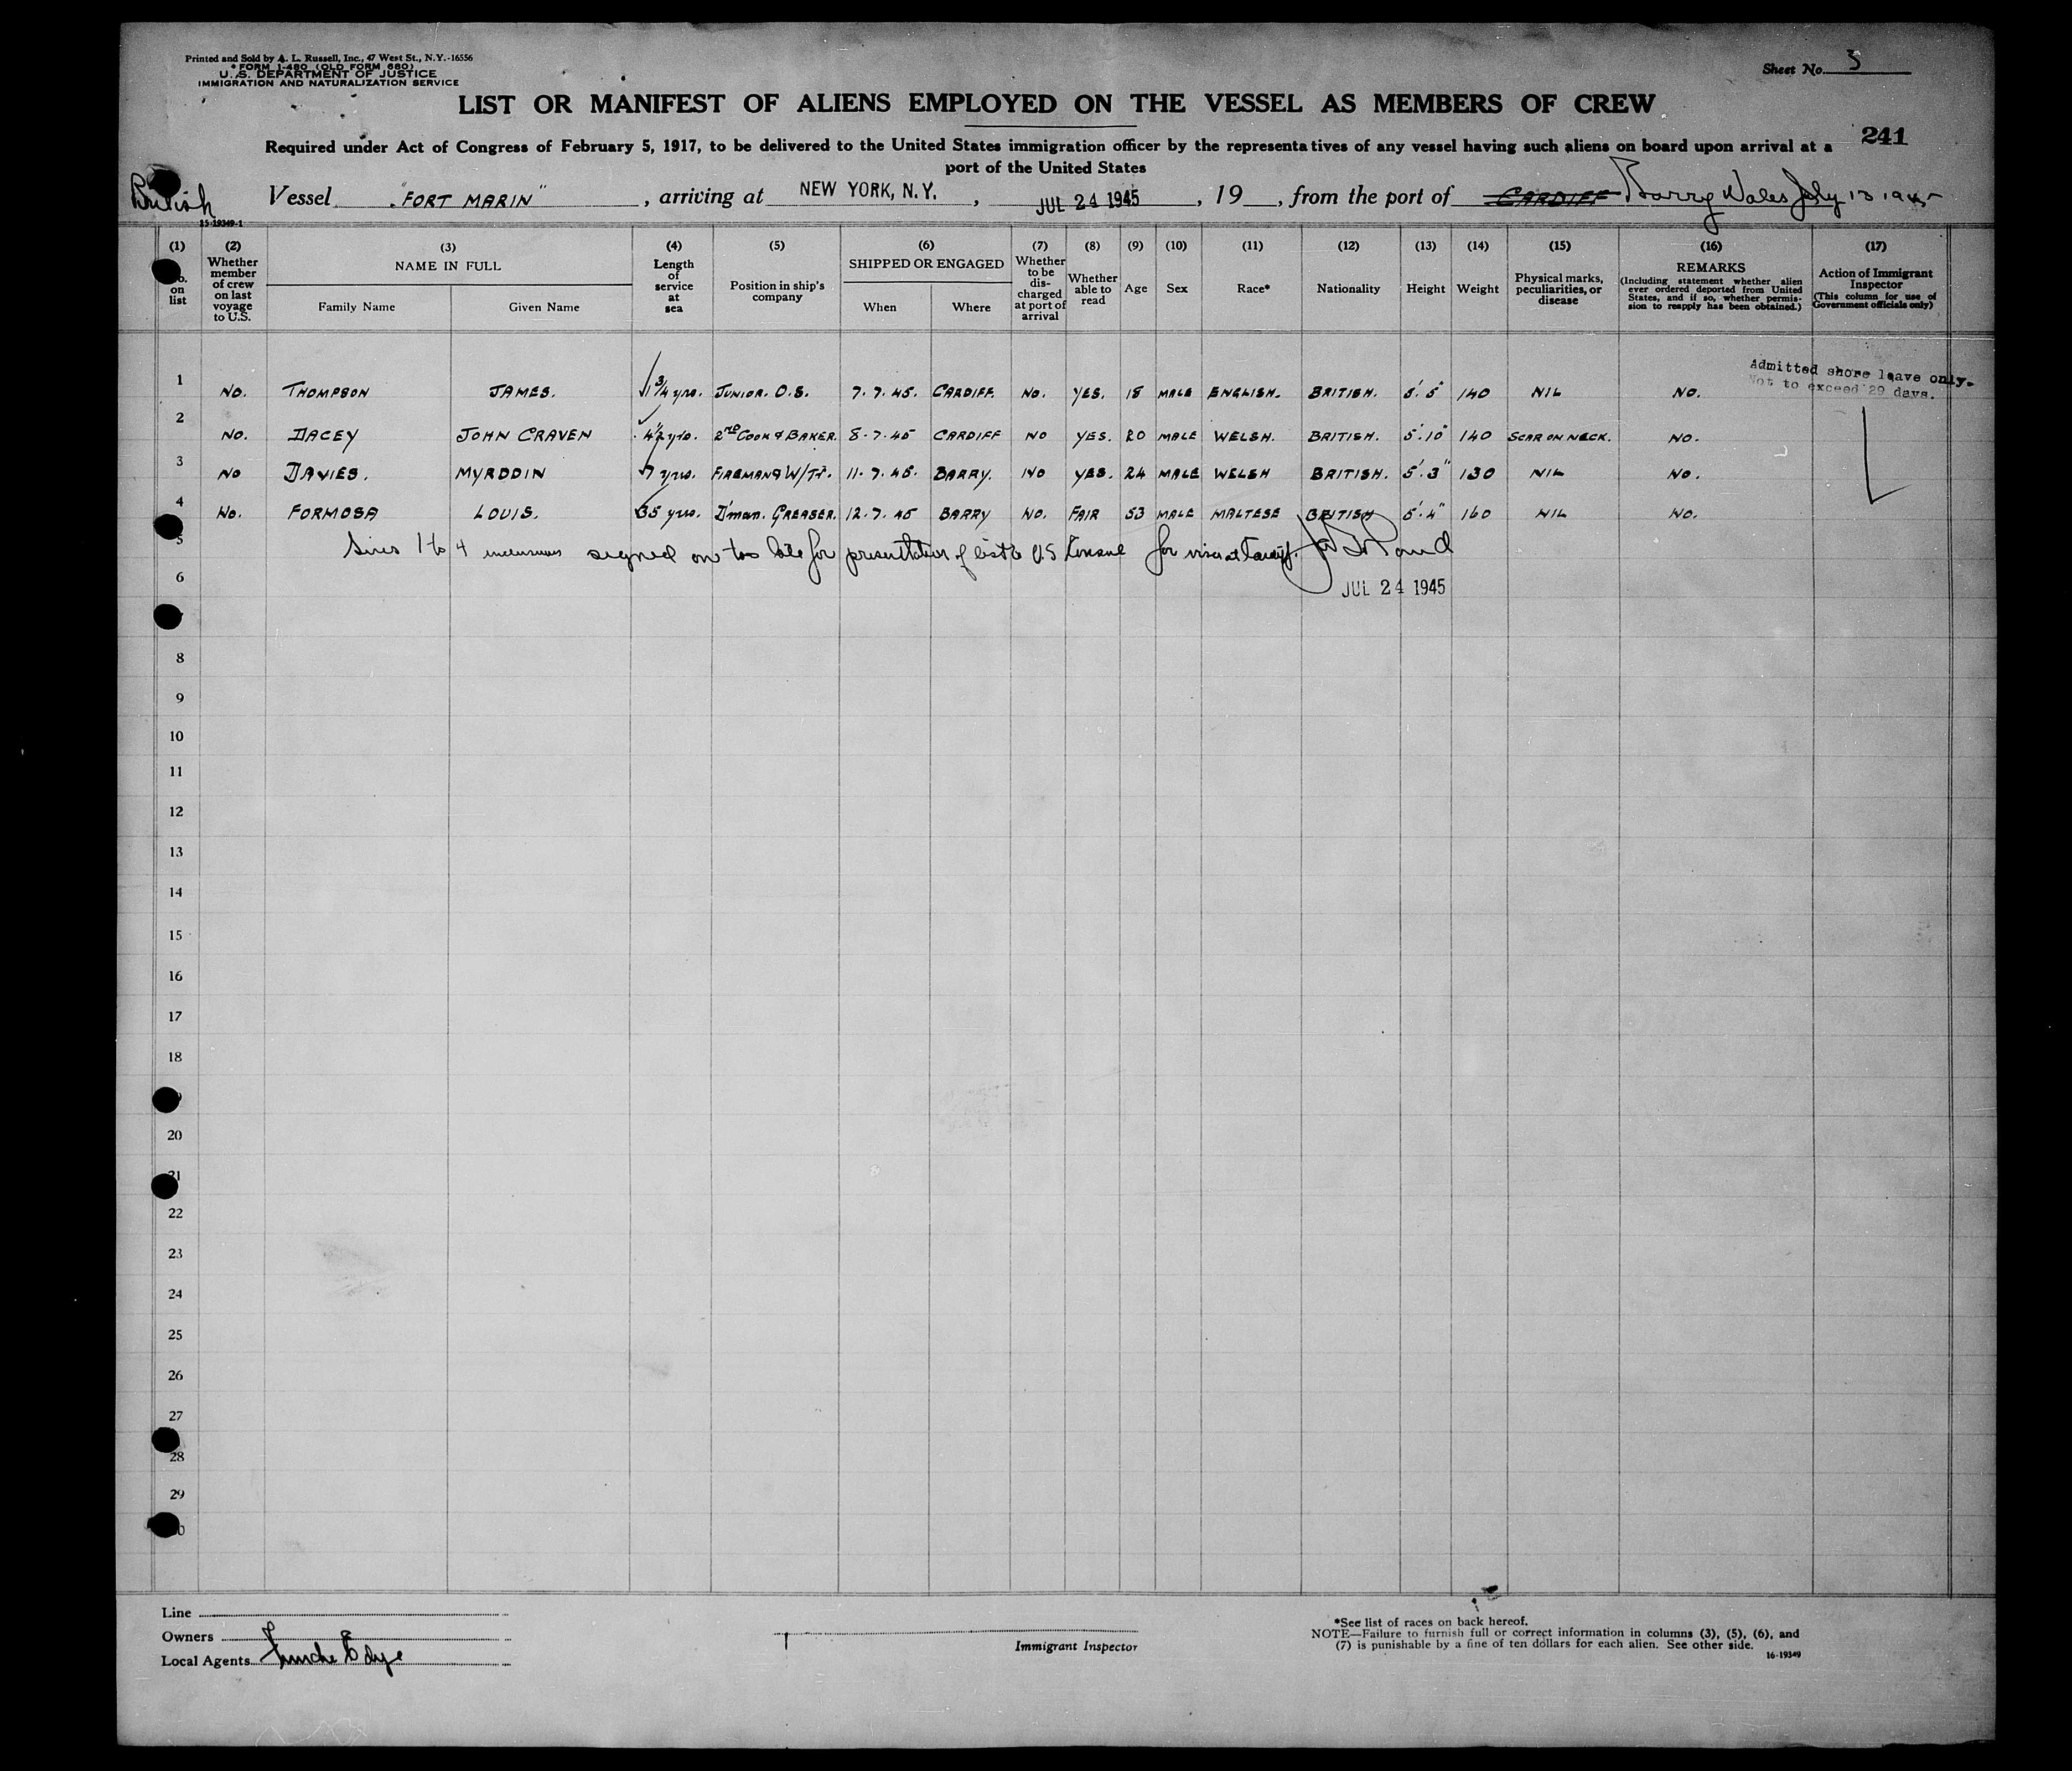 Printed and Sold by A. L. Russell, Inc., 47 West St., N.Y.-16556
FORM I-480 (OLD FORM 680)
U. S. DEPARTMENT OF JUSTICE
IMMIGRATION AND NATURALIZATION SERVICE
Sheet No. 3
LIST OR MANIFEST OF ALIENS EMPLOYED ON THE VESSEL AS MEMBERS OF CREW
241
Required under Act of Congress of February 5, 1917, to be delivered to the United States immigration officer by the representatives of any vessel having such aliens on board upon arrival at a
port of the United States
British Vessel "FORT MARIN", arriving at NEW YORK, N.Y., JUL 24 1945, 19 , from the port of CARDIFF Barry Wales July 13 1945
15-19349-1
(1) (2) (3) (4) (5) (6) (7) (8) (9) (10) (11) (12) (13) (14) (15) (16) (17)
No. on list
Whether member of crew on last voyage to U.S.
NAME IN FULL
Family Name Given Name
Length of service at sea
Position in ship's company
SHIPPED OR ENGAGED
When Where
Whether to be discharged at port of arrival
Whether able to read
Age
Sex
Race*
Nationality
Height
Weight
Physical marks, peculiarities, or disease
REMARKS
(Including statement whether alien ever ordered deported from United States, and if so, whether permission to reapply has been obtained.)
Action of Immigrant Inspector
(This column for use of Government officials only)
Admitted shore leave only.
Not to exceed 29 days.
1 NO. THOMPSON JAMES. 1 3/4 yrs. JUNIOR. O.S. 7.7.45. CARDIFF. NO. YES. 18 MALE ENGLISH. BRITISH. 5'.5" 140 NIL NO.
2 NO. DACEY JOHN CRAVEN 4½ yrs. 2ND COOK & BAKER. 8.7.45 CARDIFF NO YES. 20 MALE WELSH. BRITISH. 5'.10" 140 SCAR ON NECK. NO.
3 NO DAVIES. MYRDDIN 7 yrs. FIREMAN & W/TR. 11.7.45. BARRY. NO YES. 24 MALE WELSH BRITISH. 5'.3" 130 NIL NO.
4 NO. FORMOSA LOUIS. 35 yrs. D'man. GREASER. 12.7.45 BARRY NO. FAIR 53 MALE MALTESE BRITISH 5'.4" 160 NIL NO.
5 Lines 1 to 4 signed on too late for presentation of list to U.S Consul for visa at Cardiff.
6 JUL 24 1945
8
9
10
11
12
13
14
15
16
17
18
20
21
22
23
24
25
26
27
28
29
Line
Owners
Local Agents Funch Edye
Immigrant Inspector
*See list of races on back hereof.
NOTE—Failure to furnish full or correct information in columns (3), (5), (6), and
(7) is punishable by a fine of ten dollars for each alien. See other side.
16-19349